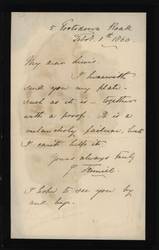 5 Portsdown Road
Feby. 1st 1860
My dear Sirs
I herewith
send you my plate -
such as it is - together
with a proof. It is a
melancholy picture, but
I can't help it.
Yours always truly
J Tenniel
I hope to see you by
and bye.